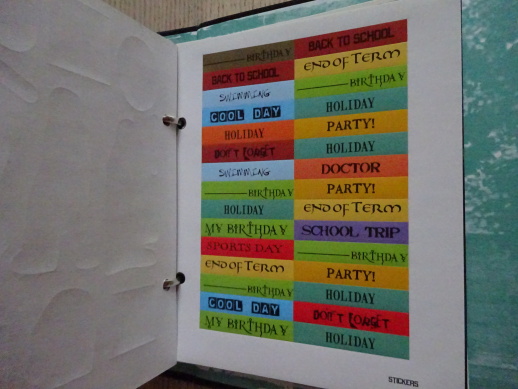 ______BIRTHDAY
BACK TO SCHOOL
SWIMMING
COOL DAY
HOLIDAY
DON'T FORGET
SWIMMING
______BIRTHDAY
HOLIDAY
MY BIRTHDAY
SPORTS DAY
END OF TERM
______BIRTHDAY
COOL DAY
MY BIRTHDAY
BACK TO SCHOOL
END OF TERM
______BIRTHDAY
HOLIDAY
PARTY!
HOLIDAY
DOCTOR
PARTY!
END OF TERM
SCHOOL TRIP
______BIRTHDAY
PARTY!
HOLIDAY
DON'T FORGET
HOLIDAY
STICKERS